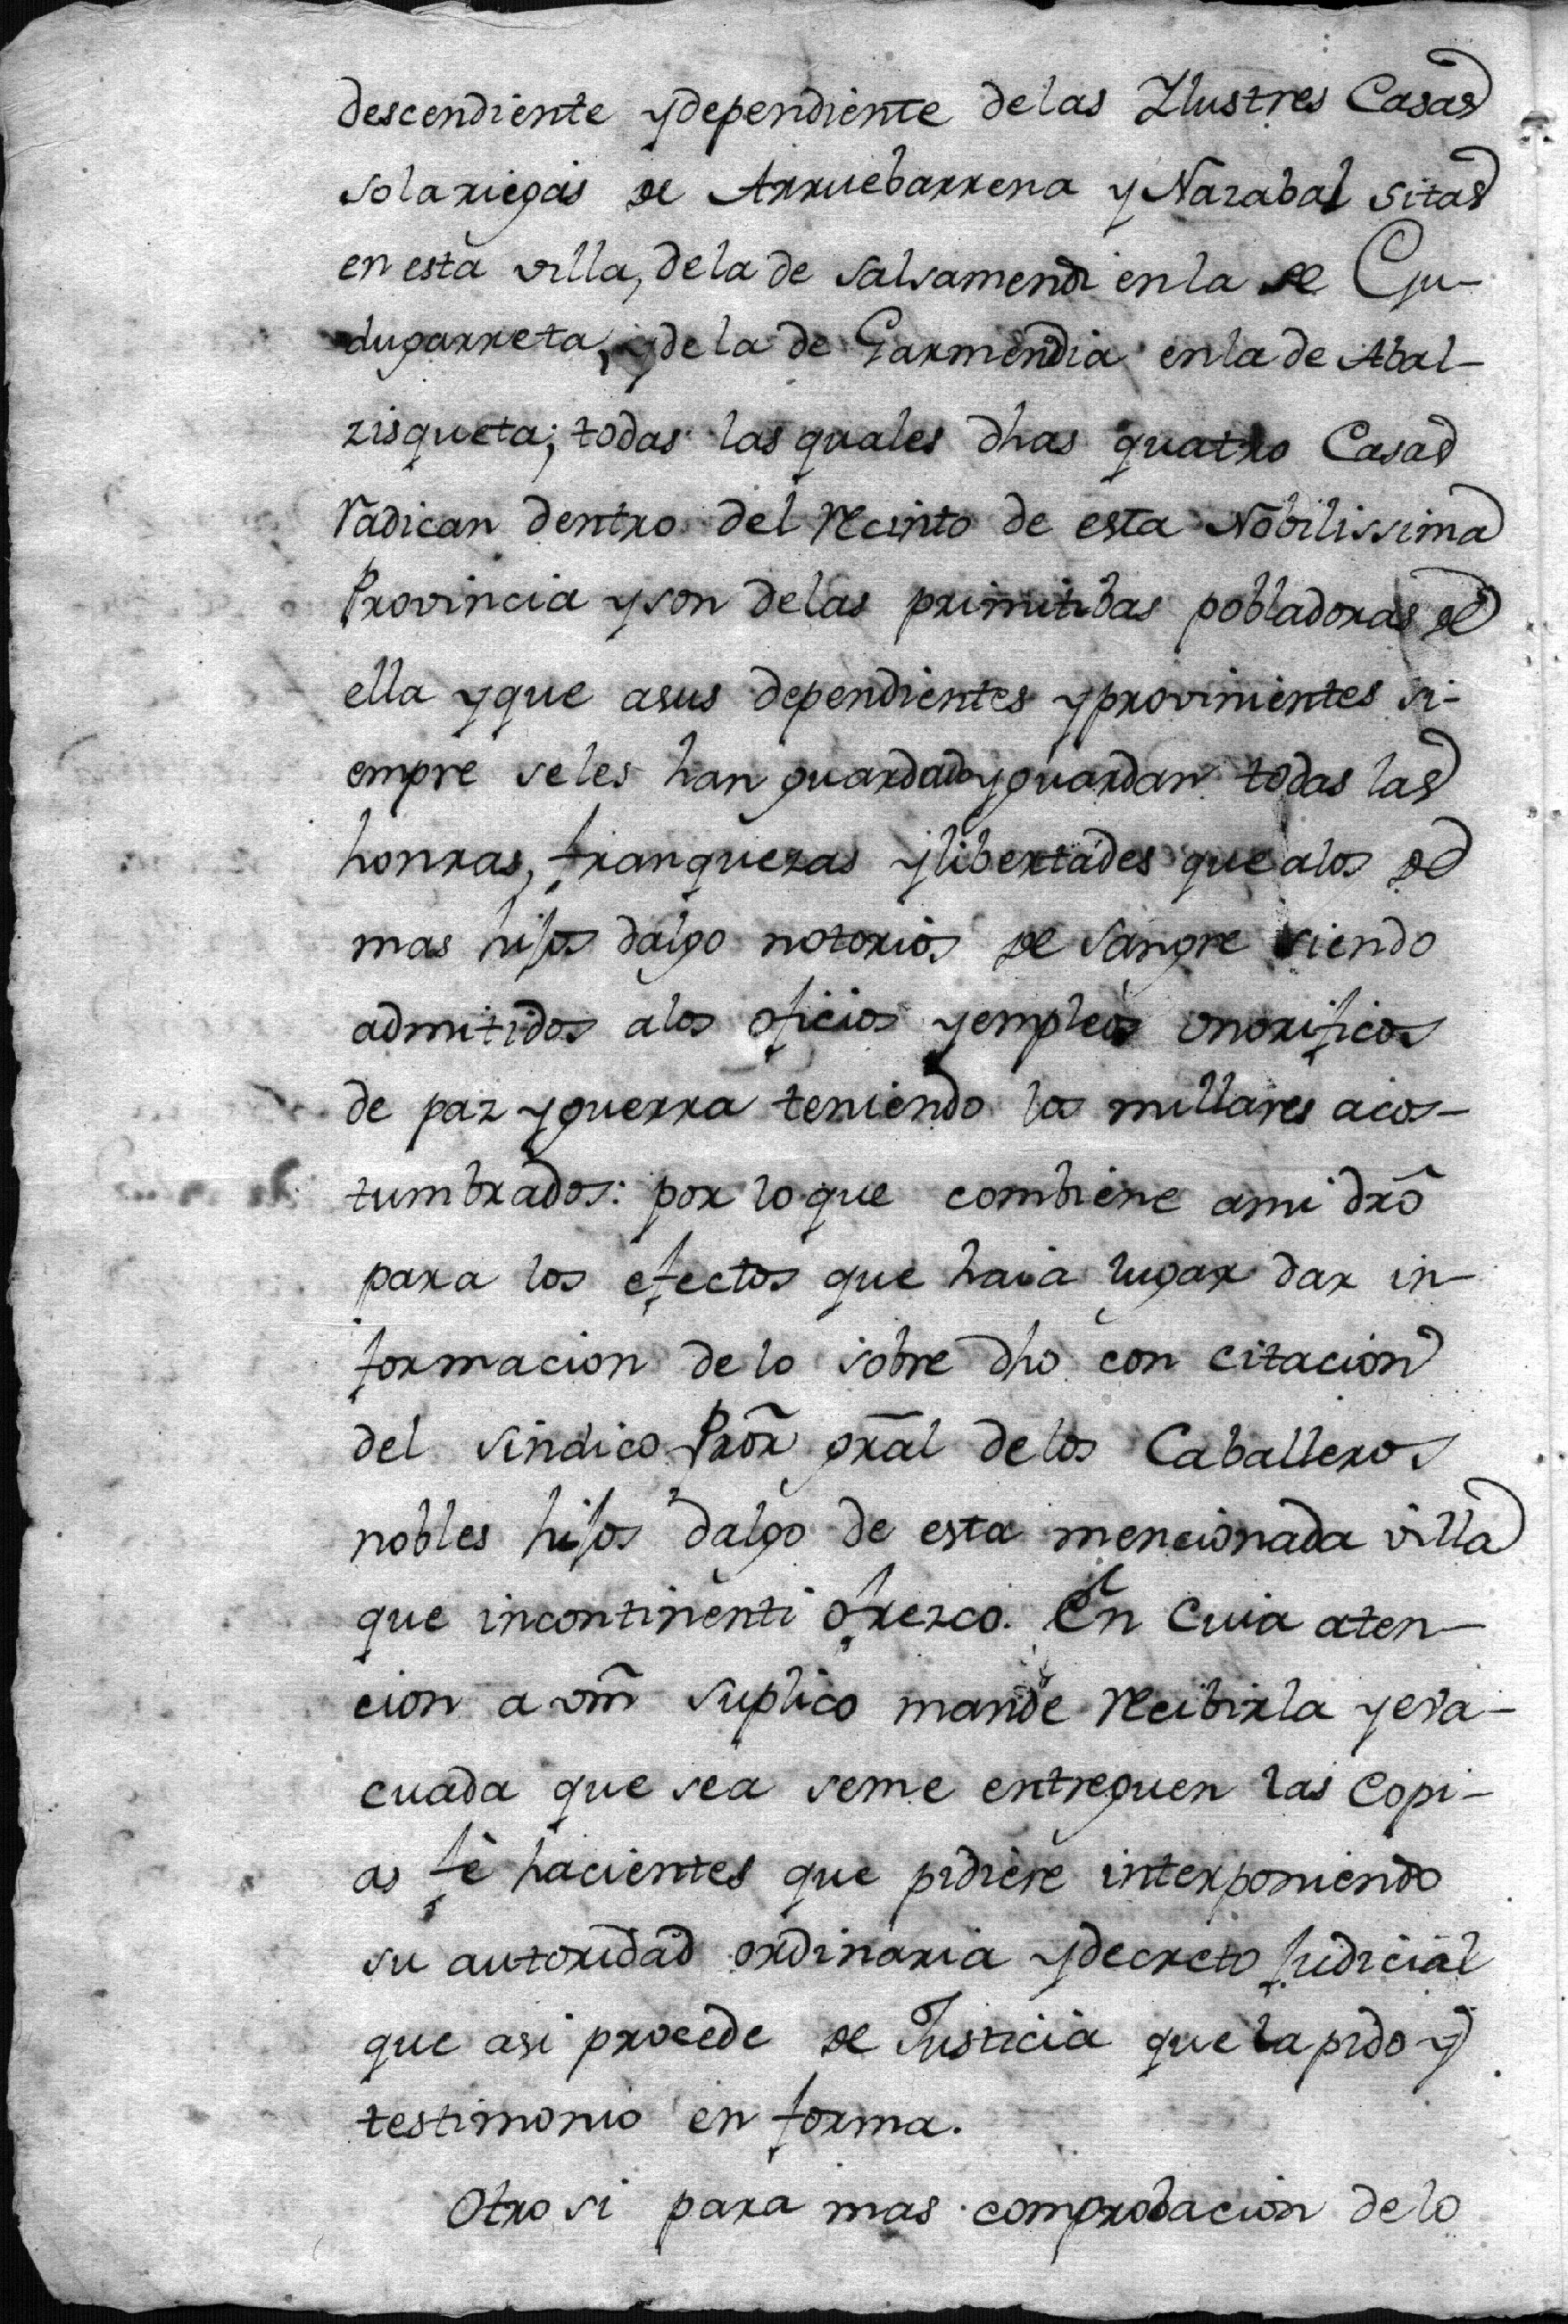 descendiente ydependiente delas Ylustres Casas
solariegas de Arruebarrena y Narabal sitas
en esta villa, dela de salsamendi enla de Gu-
dugarreta, ydela de Garmendia enla de Abal-
zisqueta; todas las quales dhas quatro Casas
radican dentro del recinto de esta Nobilissima
Provincia yson delas primitibas pobladoras de
ella yque asus dependientes yprovinientes si-
empre seles han guardado yguardan todas las
honras, franquezas ylibertades que alos de
mas hijos dalgo notorios de sangre siendo
admitidos alos oficios yempleos onorificos
de paz yguerra teniendo los millares acos-
tumbrados: por loque combiene ami dro̅
para los efectos que haia lugar dar in-
formacion delo sobre dho con citacion
del sindico Pro̅r gra̅l delos Caballeros
nobles hijos dalgo de esta mencionada villa
que incontinenti ofrezco. En Cuia aten-
cion a vm̅ suplico mande recibirla yeva-
cuada que sea seme entreguen las Copi-
as fè hacientes que pidiere interponiendo
su autoridad ordinaria ydecreto Judicial
que asi procede de Justicia que la pido y
testimonio en forma.
Otro si para mas comprobacion delo